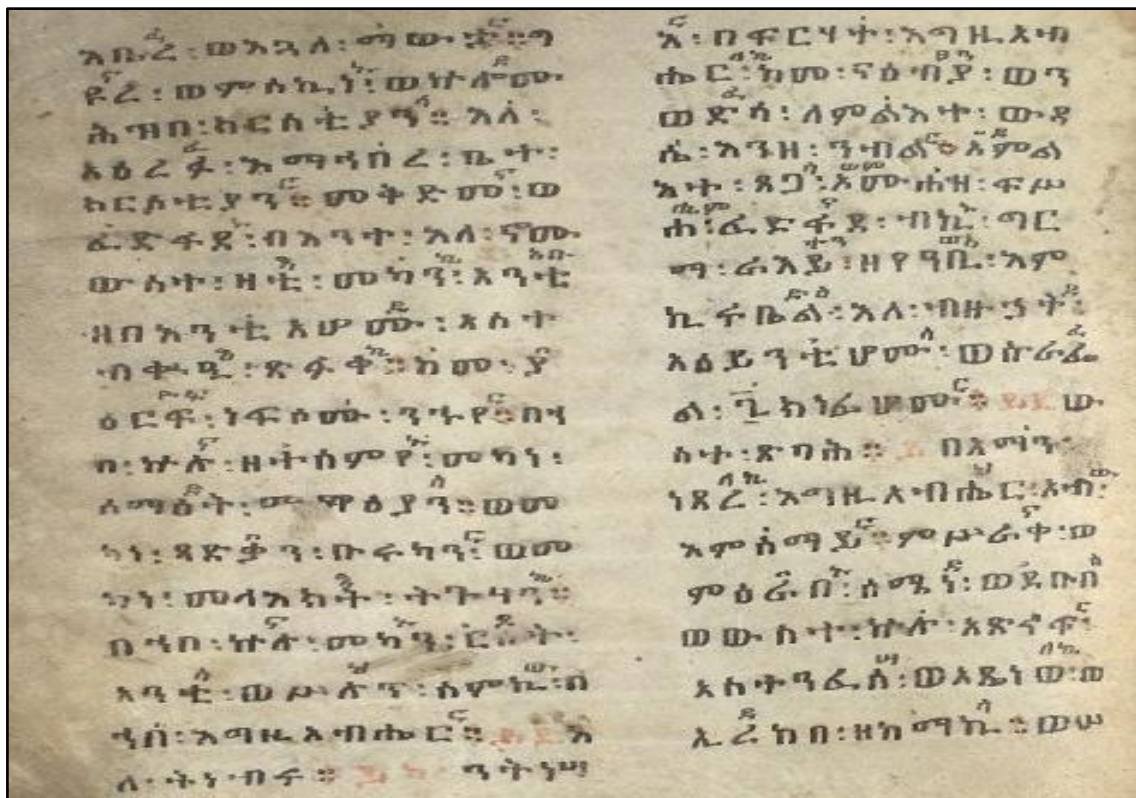 አቤረ፡ወእጓለ፡ማውታ። ግ
ዩረ፡ወምስኪነ፡ወኵሎሙ
ሕዝበ፡ክርስቲያን። እለ፡
አዕረፉ፡እማኅበረ፡ቤተ፡
ክርስቲያን። መቅድሙ፡ወ
ፈድፋደ፡በእንተ፡እለ፡ኖሙ
ውስተ፡ዛቲ፡መካን፡አንቲ
ዘበእንቲአሆሙ፡አስተ
ብቊዒ፡ጽፉቀ። ከመ፡ያ
ዕርፍ፡ነፍሶሙ፡ በኀ
በ፡ኵሉ፡ዘትሰምየ፡መካነ፡
ሰማዕት፡ሙዋዕያን። ወመ
ካነ፡ጻድቃን፡ቡሩካን፡ወመ
ካነ፡መላእክት፡ትጉሃን።
በኀበ፡ኵሉ፡መካን፡ርስት፡
አንቲ፡ወሥሉጥ፡ስምኪ፡በ
ኀበ፡እግዚአብሔር። እ
ለ፡ትነብሩ። ንትነሣ
እ፡በፍርሃተ፡እግዚአብ
ሔር፡ከመ፡ናዕብያ፡ወን
ወድሳ፡ለምልእተ፡ውዳ
ሴ፡እንዘ፡ንብል። ኦምል
እተ፡ጸጋ፡ኦሙሐዘ፡ፍሥ
ሐ፡ፈድፋደ፡ብኪ፡ግር
ማ፡ራእይ፡ዘየዓቢ፡እም
ኪሩቤል፡እለ፡ብዙኃት፡
አዕይንቲሆሙ፡ወሱራፌ
ል፡፮ክነፊሆሙ። ው
ስተ፡ጽባሕ። በአማን፡
ነጸረ፡እግዚአብሔር፡አብ፡
እምሰማይ። ምሥራቀ፡ወ
ምዕራበ፡ሰሜነ፡ወደቡበ
ወውስተ፡ኵሉ፡አጽናፍ፡
አስተንፈሰ፡ወአጼነወ፡ወ
ኢረከበ፡ዘከማኪ። ወሠ